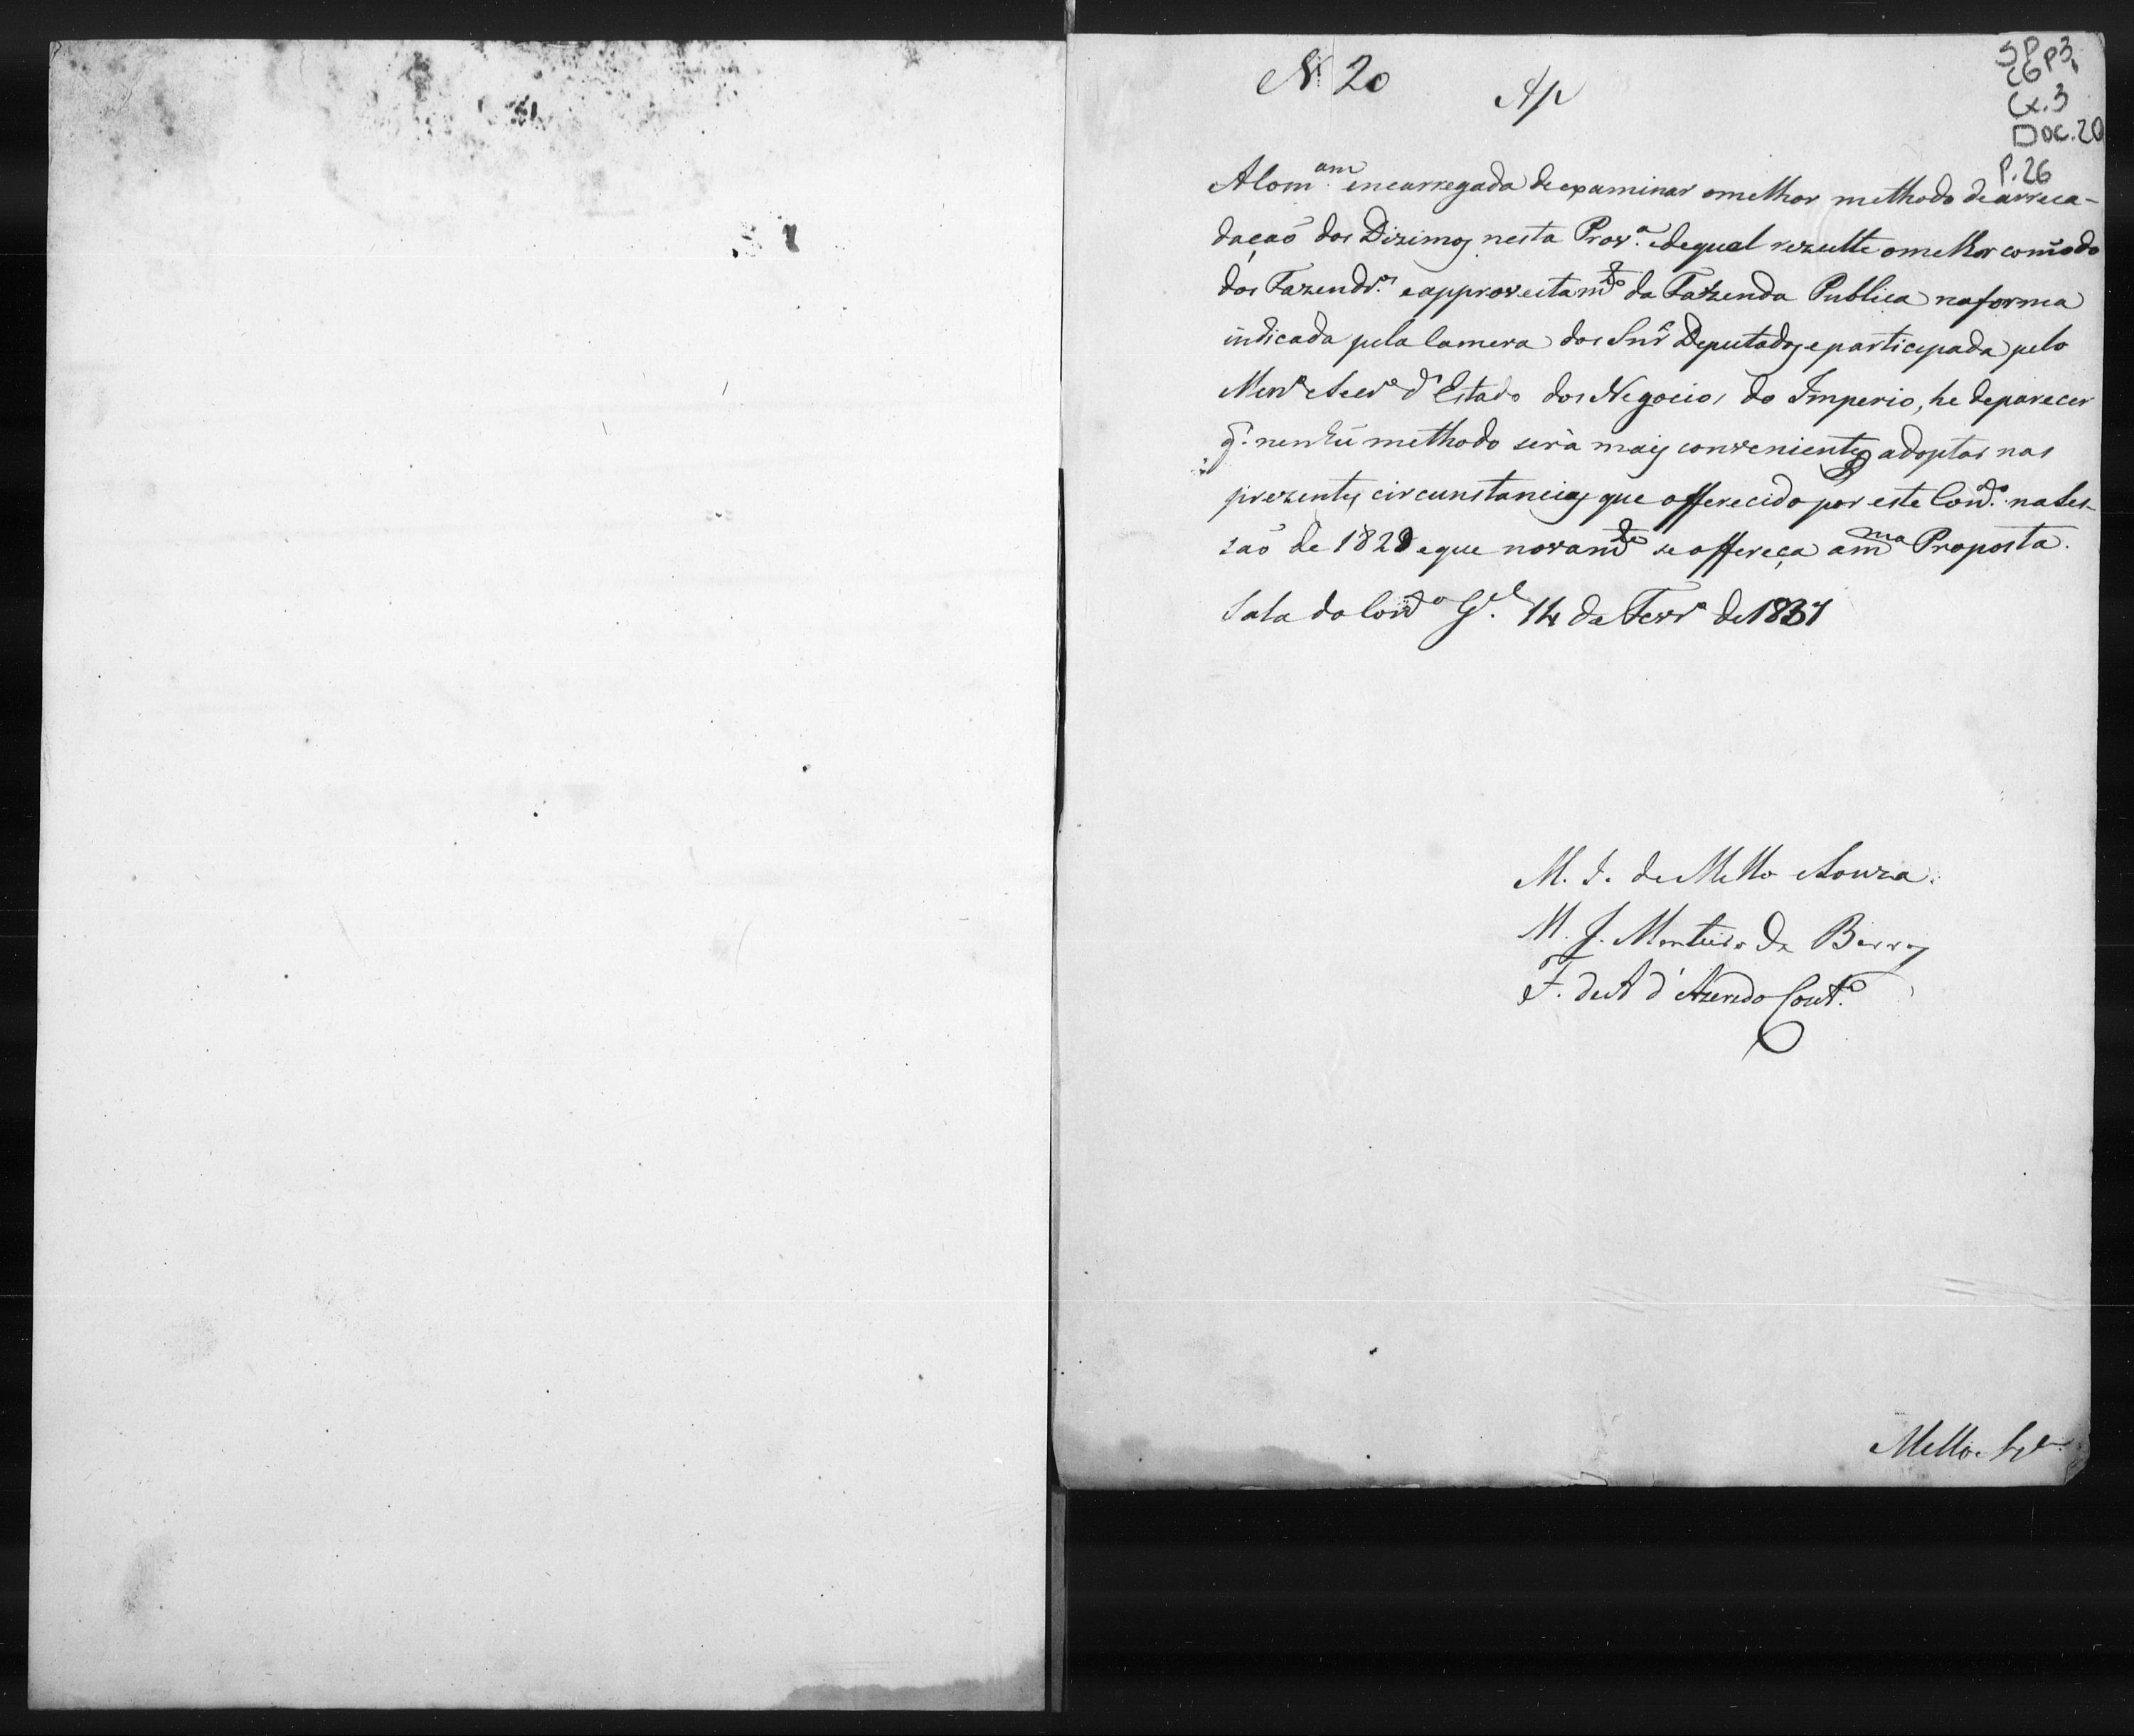 N 20
Ap
SP
CGP3,
Cx.3
Doc.20
P.26
A Com.am encarregada de examinar o melhor methodo de arreca-
dação dos Dizimos nesta Prov.a e de qual rezulte o melhor comodo
dos Fazendr.os e approveitam.to da Fazenda Publica na forma
indicada pela Camera dos Snr.s Deputados, e participada pelo
Min.o e Secr.o d'Estado dos Negocios do Imperio, he de parecer
q' nenhũ methodo serà mais conveniente adoptar nas
prezentes circunstancias que offerecido por este Con.o na Ses-
saõ de 1828 e que novam.te se offereça a m.ma Proposta.
Sala do Con.o G.el 14 de Fevr.o de 1831
M. I. de Mello e Souza.
M. J. Monteiro de Barros
F. de A d'Azeredo Cout.o
Mello e